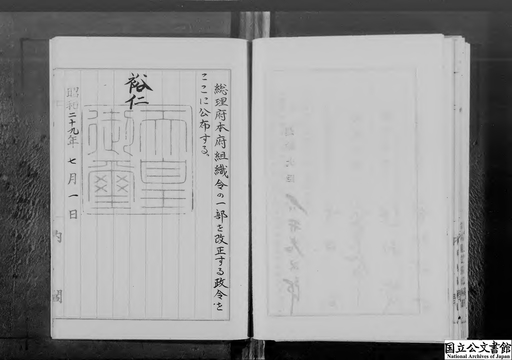 総理府本府組織令の一部を改正する政令を
ここに公布する。
裕仁
天皇
御璽
昭和二十九年七月一日
内閣
国立公文書館
National Archives of Japan